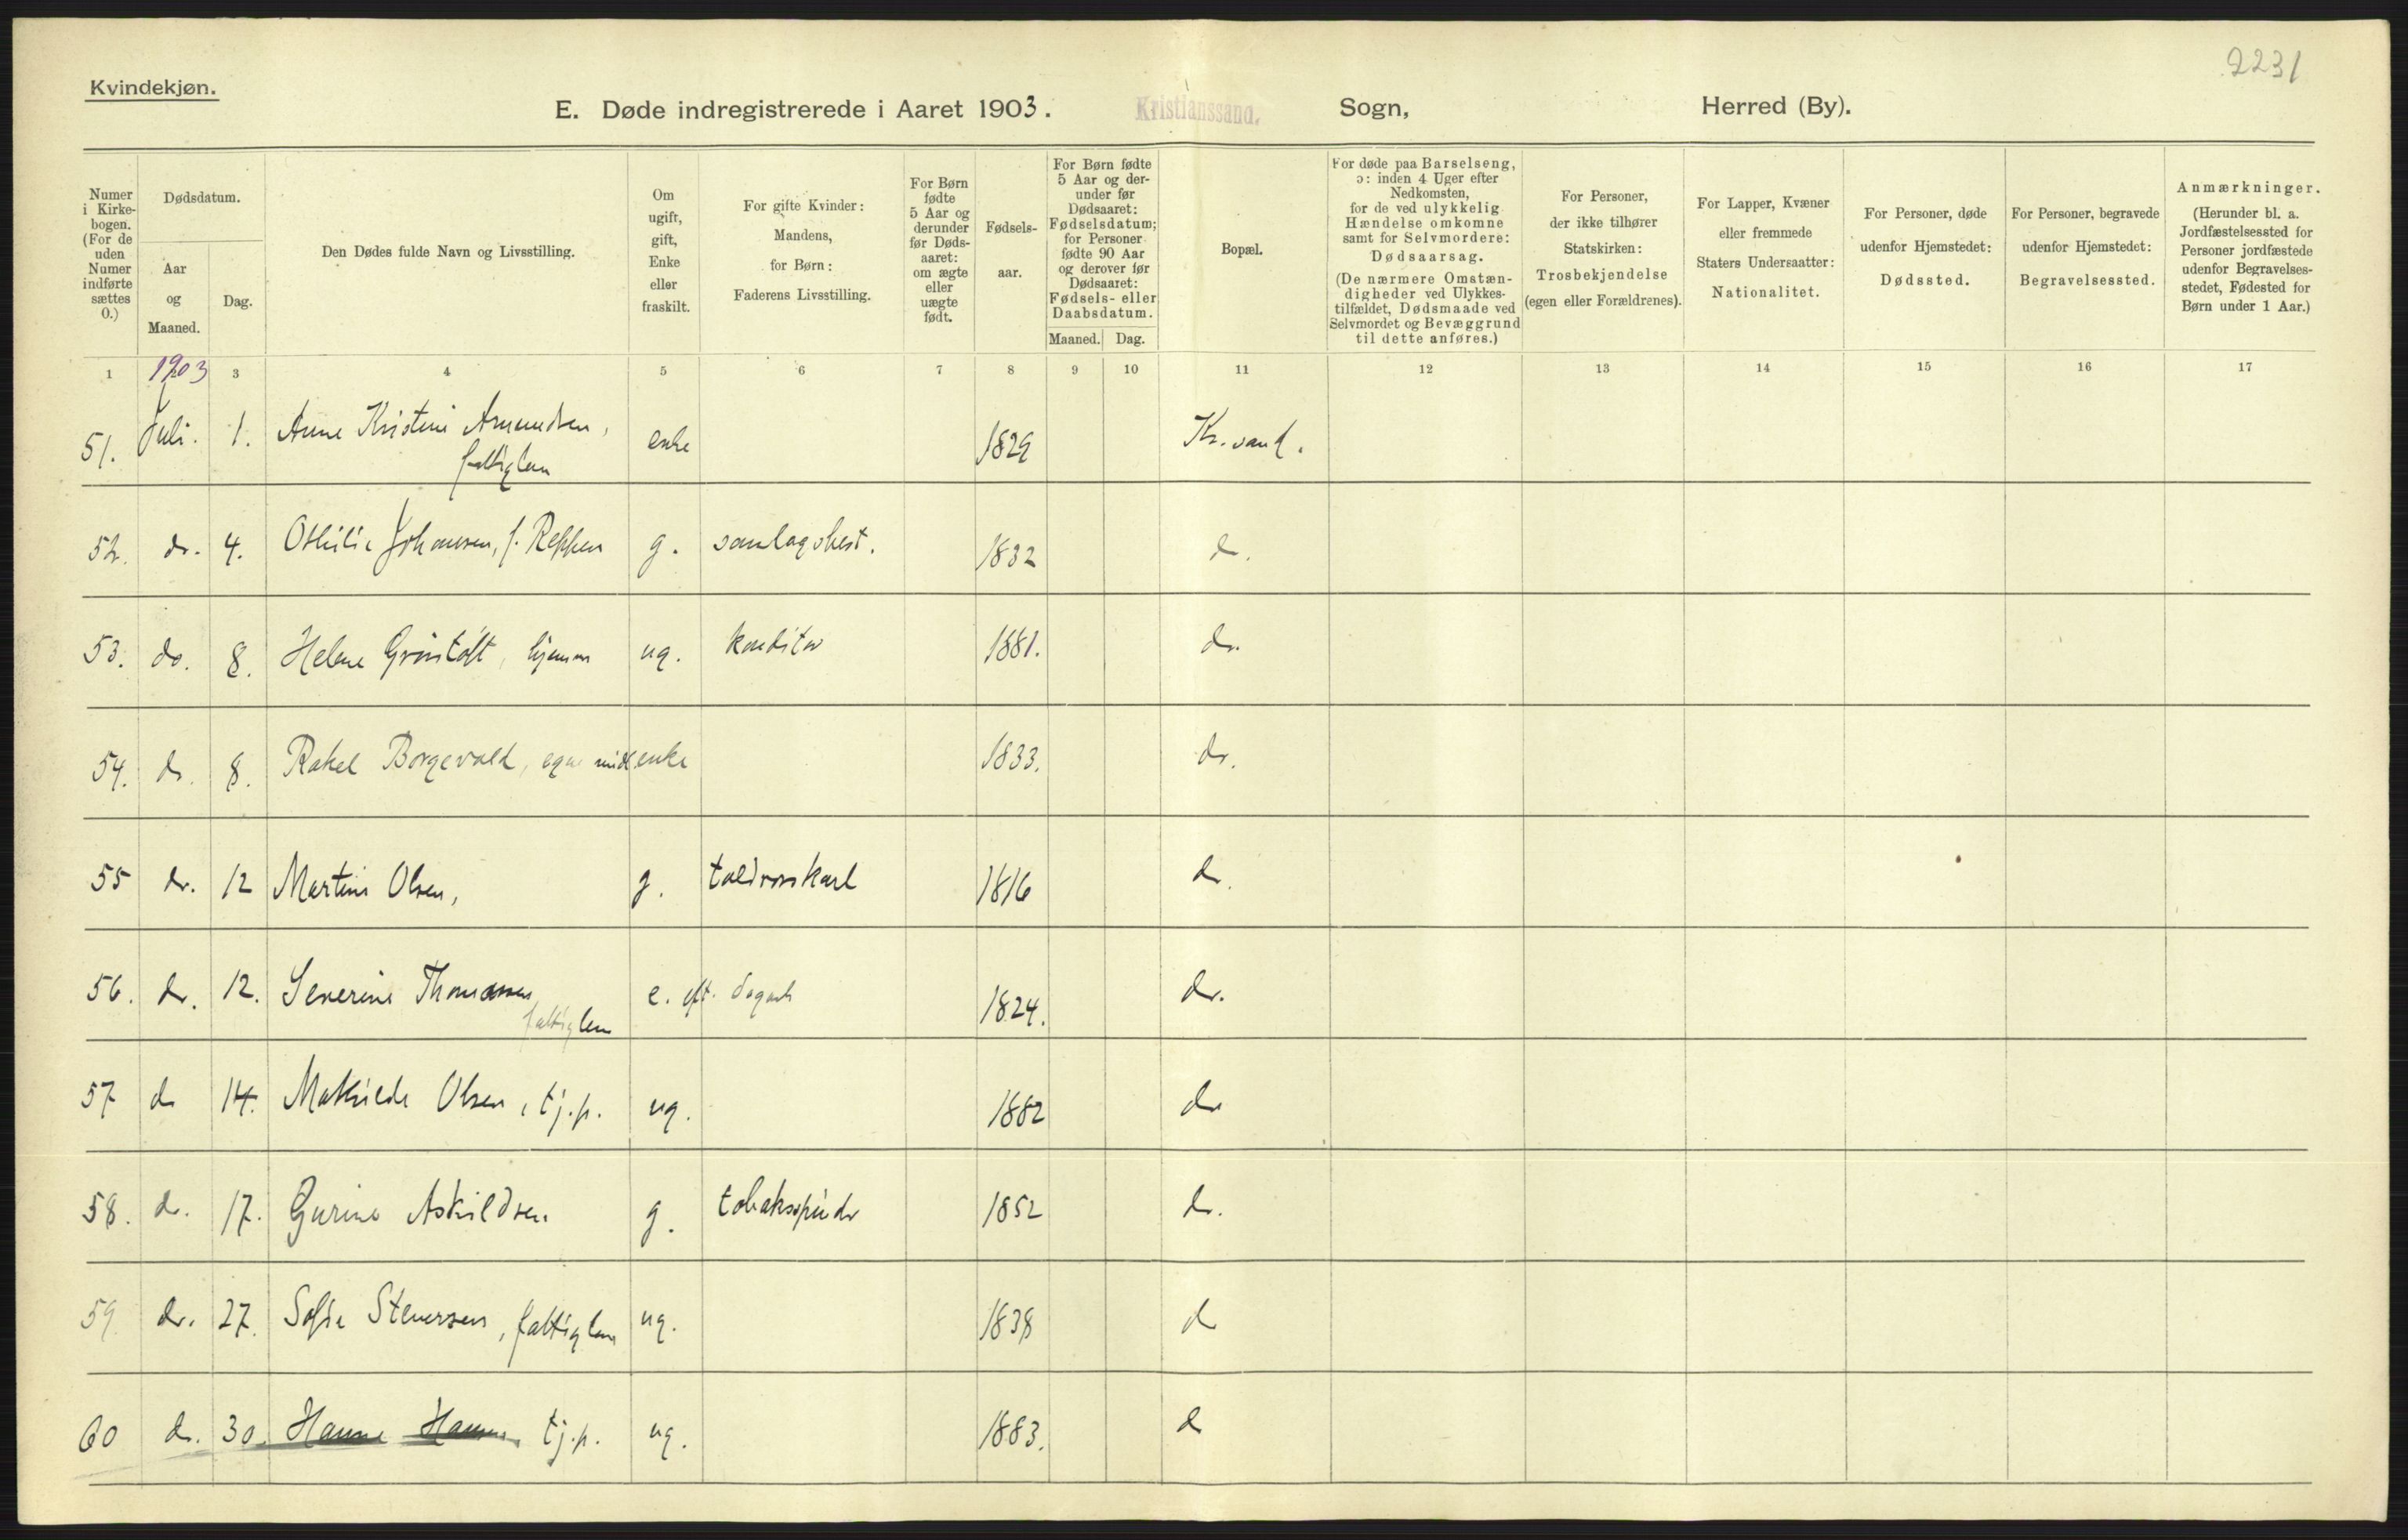 2231
Kvindekjøn.
E. Døde indregistrerede i Aaret 1903. Kristianssand. Sogn, Herred (By).
Numer i Kirkebogen. (For de uden Numer indførte sættes 0.)
Dødsdatum.
Aar og Maaned.
Dag.
Den Dødes fulde Navn og Livsstilling.
Om ugift, gift, Enke eller fraskilt.
For gifte Kvinder: Mandens, for Børn: Faderens Livsstilling.
For Børn fødte 5 Aar og derunder før Dødsaaret: om ægte eller uægte født.
Fødselsaar.
For Børn fødte 5 Aar og derunder før Dødsaaret: Fødselsdatum; for Personer fødte 90 Aar og derover før Dødsaaret: Fødsels- eller Daabsdatum.
Maaned. Dag.
Bopæl.
For døde paa Barselseng, ɔ: inden 4 Uger efter Nedkomsten, for de ved ulykkelig Hændelse omkomne samt for Selvmordere: Dødsaarsag. (De nærmere Omstændigheder ved Ulykkestilfældet, Dødsmaade ved Selvmordet og Bevæggrund til dette anføres.)
For Personer, der ikke tilhører Statskirken: Trosbekjendelse (egen eller Forældrenes).
For Lapper, Kvæner eller fremmede Staters Undersaatter: Nationalitet.
For Personer, døde udenfor Hjemstedet: Dødssted.
For Personer, begravede udenfor Hjemstedet: Begravelsessted.
Anmærkninger. (Herunder bl. a. Jordfæstelsessted for Personer jordfæstede udenfor Begravelsesstedet, Fødested for Børn under 1 Aar.)
1 1903 3 4 5 6 7 8 9 10 11 12 13 14 15 16 17
51. Juli. 1. Anne Kristine Amundsen, enke 1829 Kr.sand.
fattiglem
52. do. 4. Othilie Johansen, f. Reppen g. samlagsbest. 1832 do.
53. do. 8. Helene Grøntoft, hjemm ug. konditor 1881. do.
54. do. 8. Rakel Borgevold, egne midl enke 1833. do.
55 do. 12 Martine Olsen, g. toldrorskarl 1816 do.
56. do. 12. Severine Thomassen e. eft. dagarb 1824. do.
fattiglem
57 do 14. Mathilde Olsen, tj.p. ug. 1882 do
58. do. 17. Gurine Askildsen g. tobaksspinder 1852 do.
59. do. 27. Sofie Stenersen, fattiglem ug. 1838 do
60 do. 30. Hanne Hansen, tj.p. ug. 1883. do